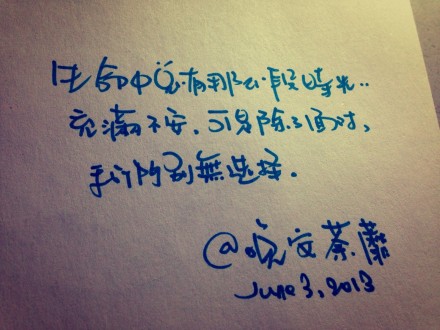 生命中总有那么一段时光..
充滿不安，可是除了面对，
我们别無选择。
@晚安荼蘼
June 3, 2013